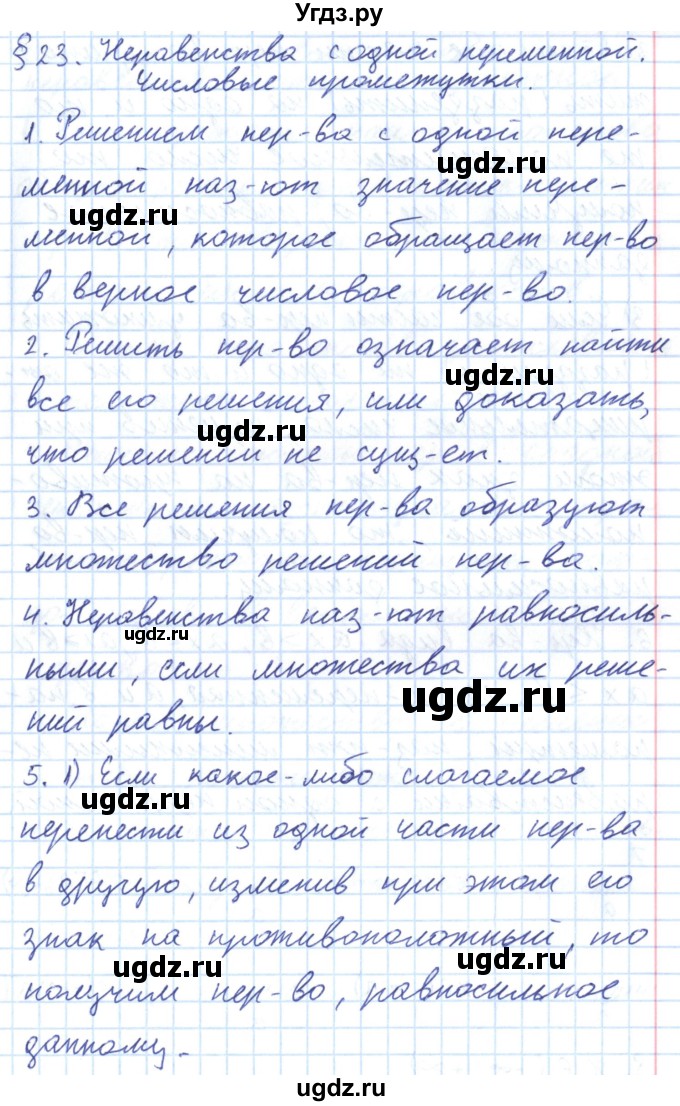 Угдз.ру
§23. Неравенства с одной переменной.
Числовые промежутки.
1. Решением нер-ва с одной пере-
ugdz.ru
менной наз-ют значение пере-
ugdz.ru
менной, которое обращает нер-во
в верное числовое нер-во.
2. Решить нер-во означает найти
ugdz.ru
все его решения, или доказать,
ugdz.ru
что решений не сущ-ет.
3. Все решения нер-ва образуют
множество решений нер-ва.
4. Неравенства наз-ют равносиль-
ugdz.ru
ными, если множества их реше-
ugdz.ru
ний равны.
5. 1) Если какое-либо слагаемое
ugdz.ru
перенести из одной части нер-ва
в другую, изменив при этом его
знак на противоположный, то
ugdz.ru ugdz.ru
получим нер-во, равносильное
данному.
ugdz.ru